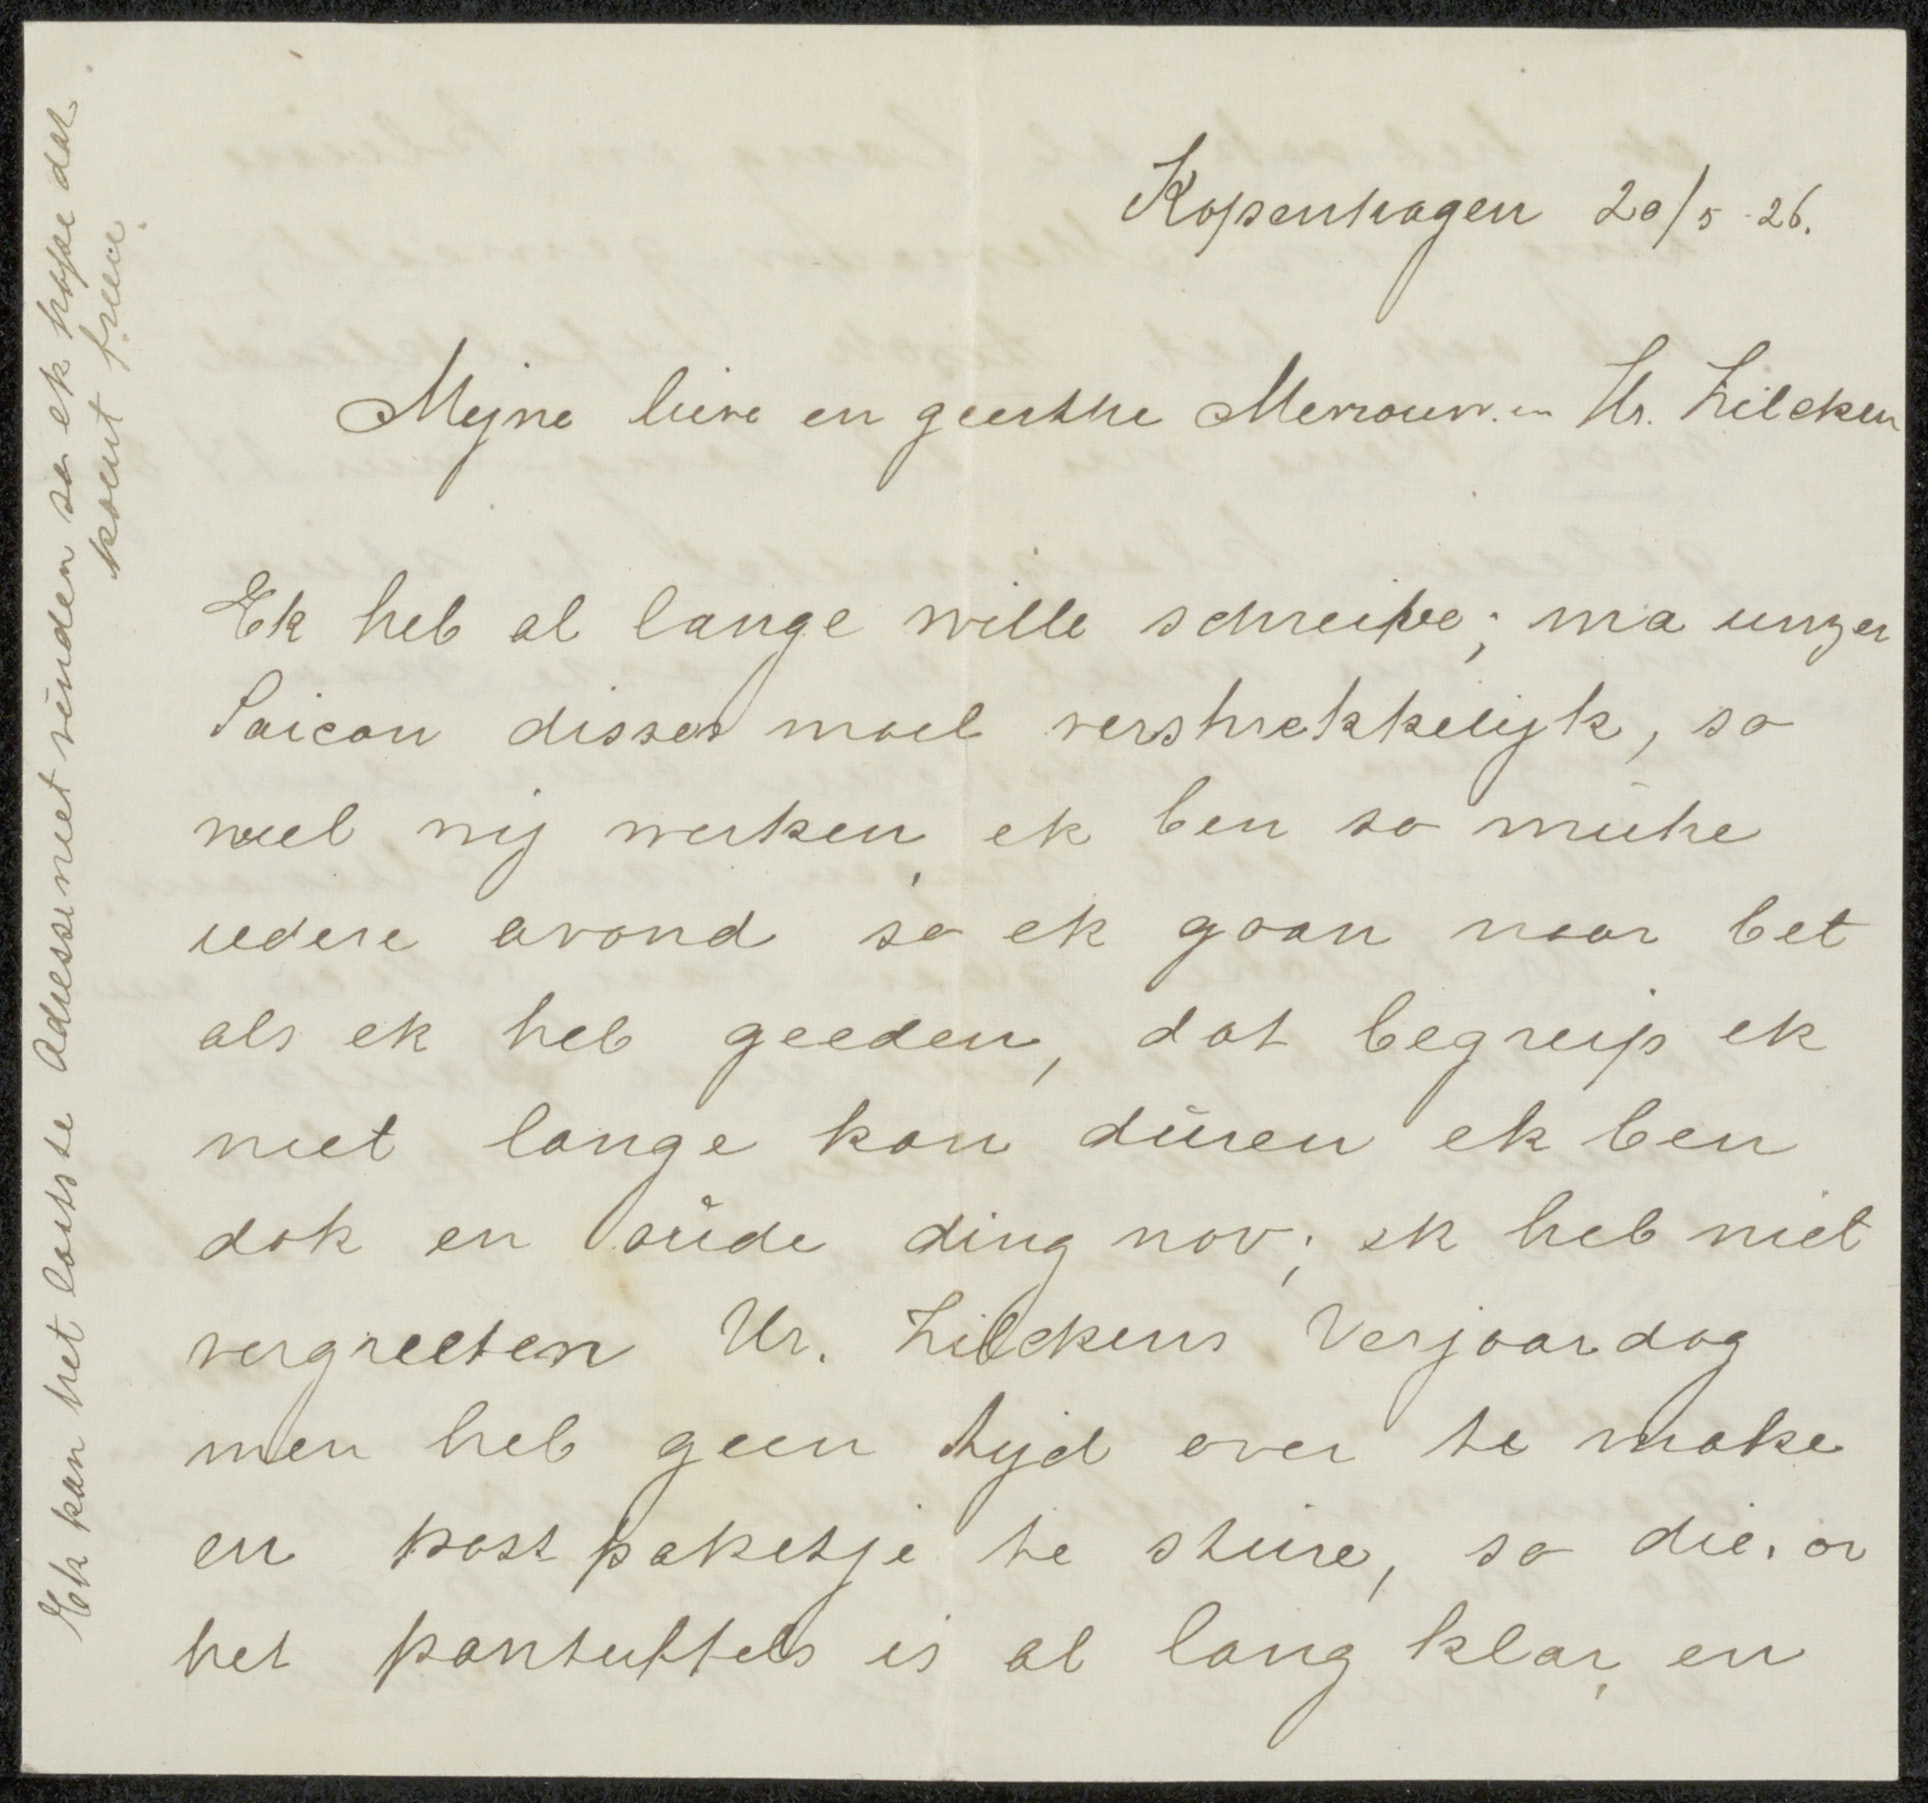 Kopenhagen 20/5 26.
Mejne lieve en geerthe Mevrouw. en Hr. Zilcken
Ek heb al lange wille schreibe; ma unzer
Saicon disses mael vershrekkelijk, so
veel wij werken, ek ben so mühe
iedere avond so ek gaan naar bet
als ek heb geeden, dat begreip ek
niet lange kan düren ek ben
dok en oüde ding nov; ek heb niet
vergreeten Hr. Zilckens Verjaardag
men heb geen tyd over te make
en post paketje te stüre, so die. or
het pantuffels is al lang klar, en
Ek kan het latste Adresse niet vinden so ek hope dat
komt